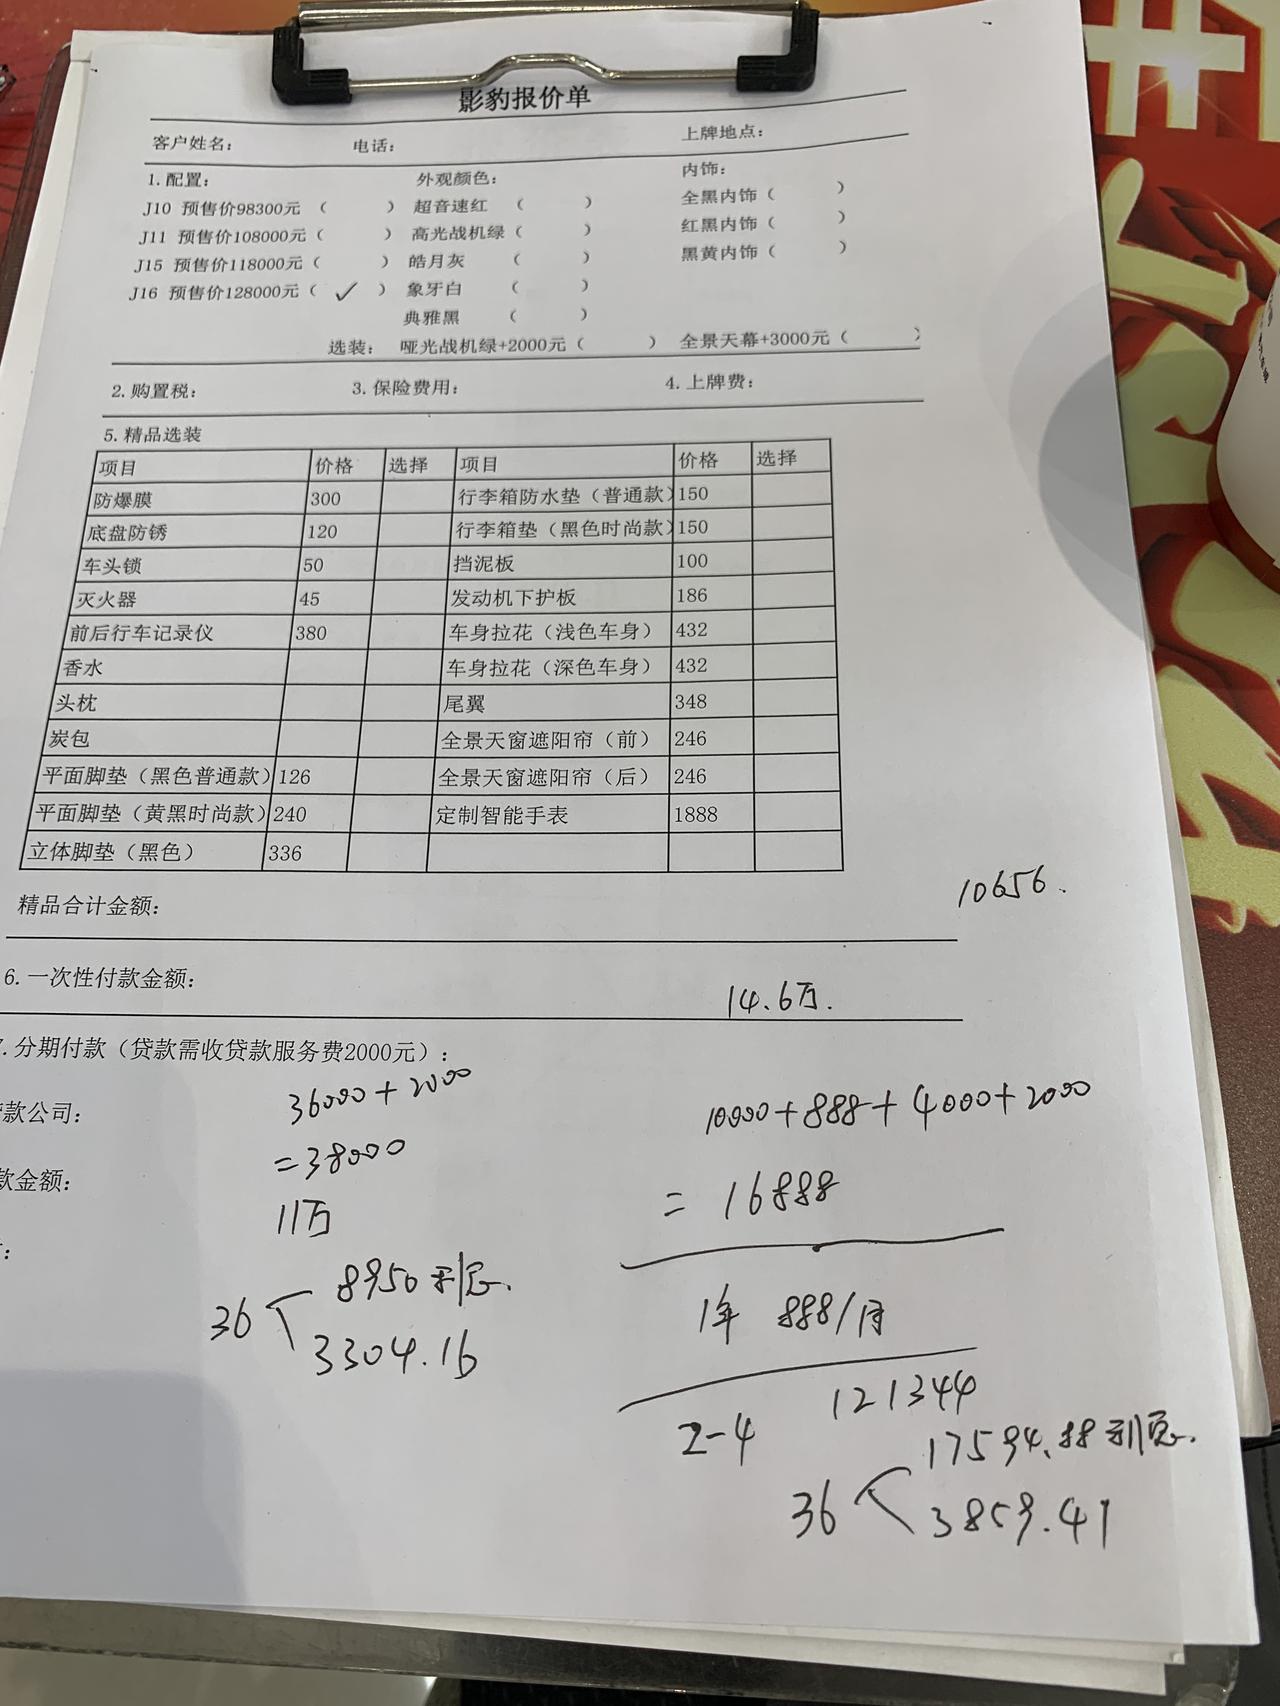 影豹报价单
客户姓名: 电话: 上牌地点:
1.配置: 外观颜色: 内饰:
J10 预售价98300元 ( ) 超音速红 ( ) 全黑内饰 ( )
J11 预售价108000元 ( ) 高光战机绿 ( ) 红黑内饰 ( )
J15 预售价118000元 ( ) 皓月灰 ( ) 黑黄内饰 ( )
J16 预售价128000元 ( ✓ ) 象牙白 ( )
典雅黑 ( )
选装: 哑光战机绿+2000元 ( ) 全景天幕+3000元 ( )
2.购置税: 3.保险费用: 4.上牌费:
5.精品选装
项目 价格 选择 项目 价格 选择
防爆膜 300 行李箱防水垫（普通款） 150
底盘防锈 120 行李箱垫（黑色时尚款） 150
车头锁 50 挡泥板 100
灭火器 45 发动机下护板 186
前后行车记录仪 380 车身拉花（浅色车身） 432
香水 车身拉花（深色车身） 432
头枕 尾翼 348
炭包 全景天窗遮阳帘（前） 246
平面脚垫（黑色普通款） 126 全景天窗遮阳帘（后） 246
平面脚垫（黄黑时尚款） 240 定制智能手表 1888
立体脚垫（黑色） 336
10656.
精品合计金额:
6.一次性付款金额: 14.6万.
7.分期付款（贷款需收贷款服务费2000元）:
款公司: 36000+2000 10000+888+4000+2000
=38000 = 16888
款金额: 11万
:
36 8950利息. 1年 888/月
3304.16
2-4 121344
17594.88利息.
36 3859.41